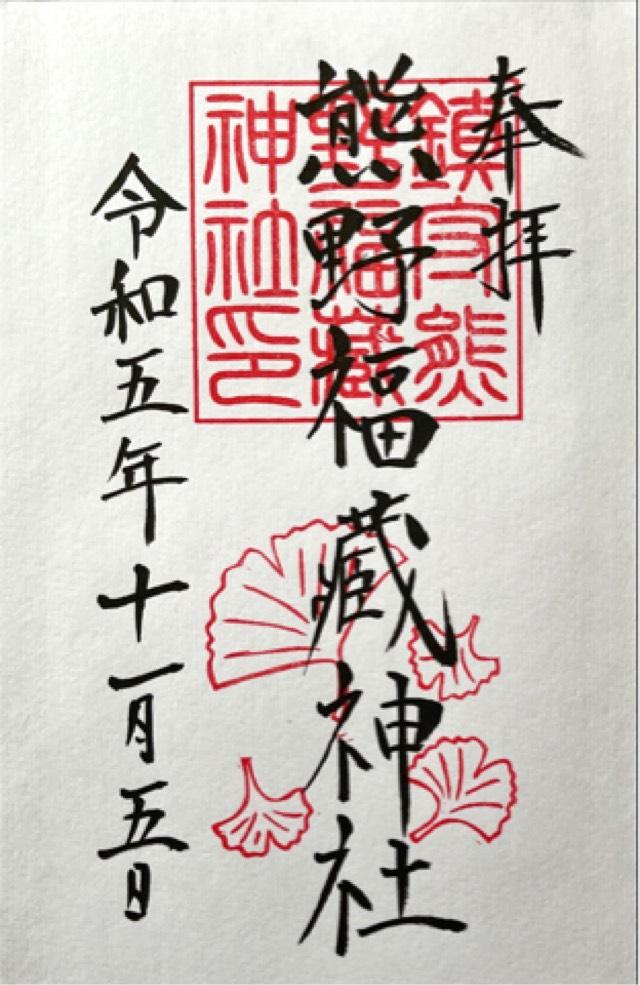 奉拝
熊野福蔵神社
令和五年十一月五日
鎮守熊
野福蔵
神社印